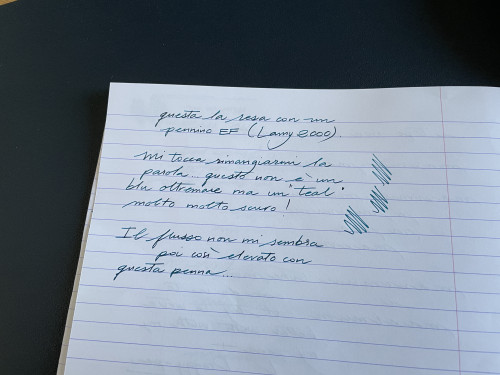 questa la resa con un
pennino EF (Lamy 2000).
mi tocca rimangiarmi la
parola... questo non è un
blu oltremare ma un "teal"
molto molto scuro!
Il flusso non mi sembra
poi così elevato con
questa penna...